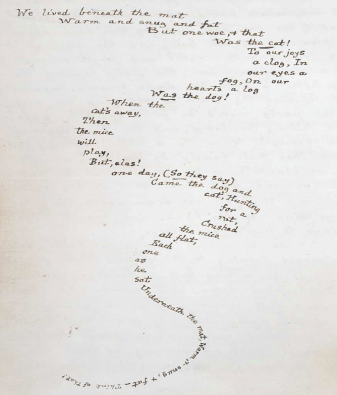 We lived beneath the mat
Warm and snug and fat
But one woe, & that
Was the cat!
To our joys
a clog, In
our eyes a
fog, On our
hearts a log
Was the dog!
When the
cat's away,
Then
the mice
will
play,
But, alas!
one day, (So they say)
Came the dog and
cat, Hunting
for a
rat,
Crushed
the mice
all flat,
Each
one
as
he
sat
Underneath the mat, Warm, & snug, & fat – Think of that!